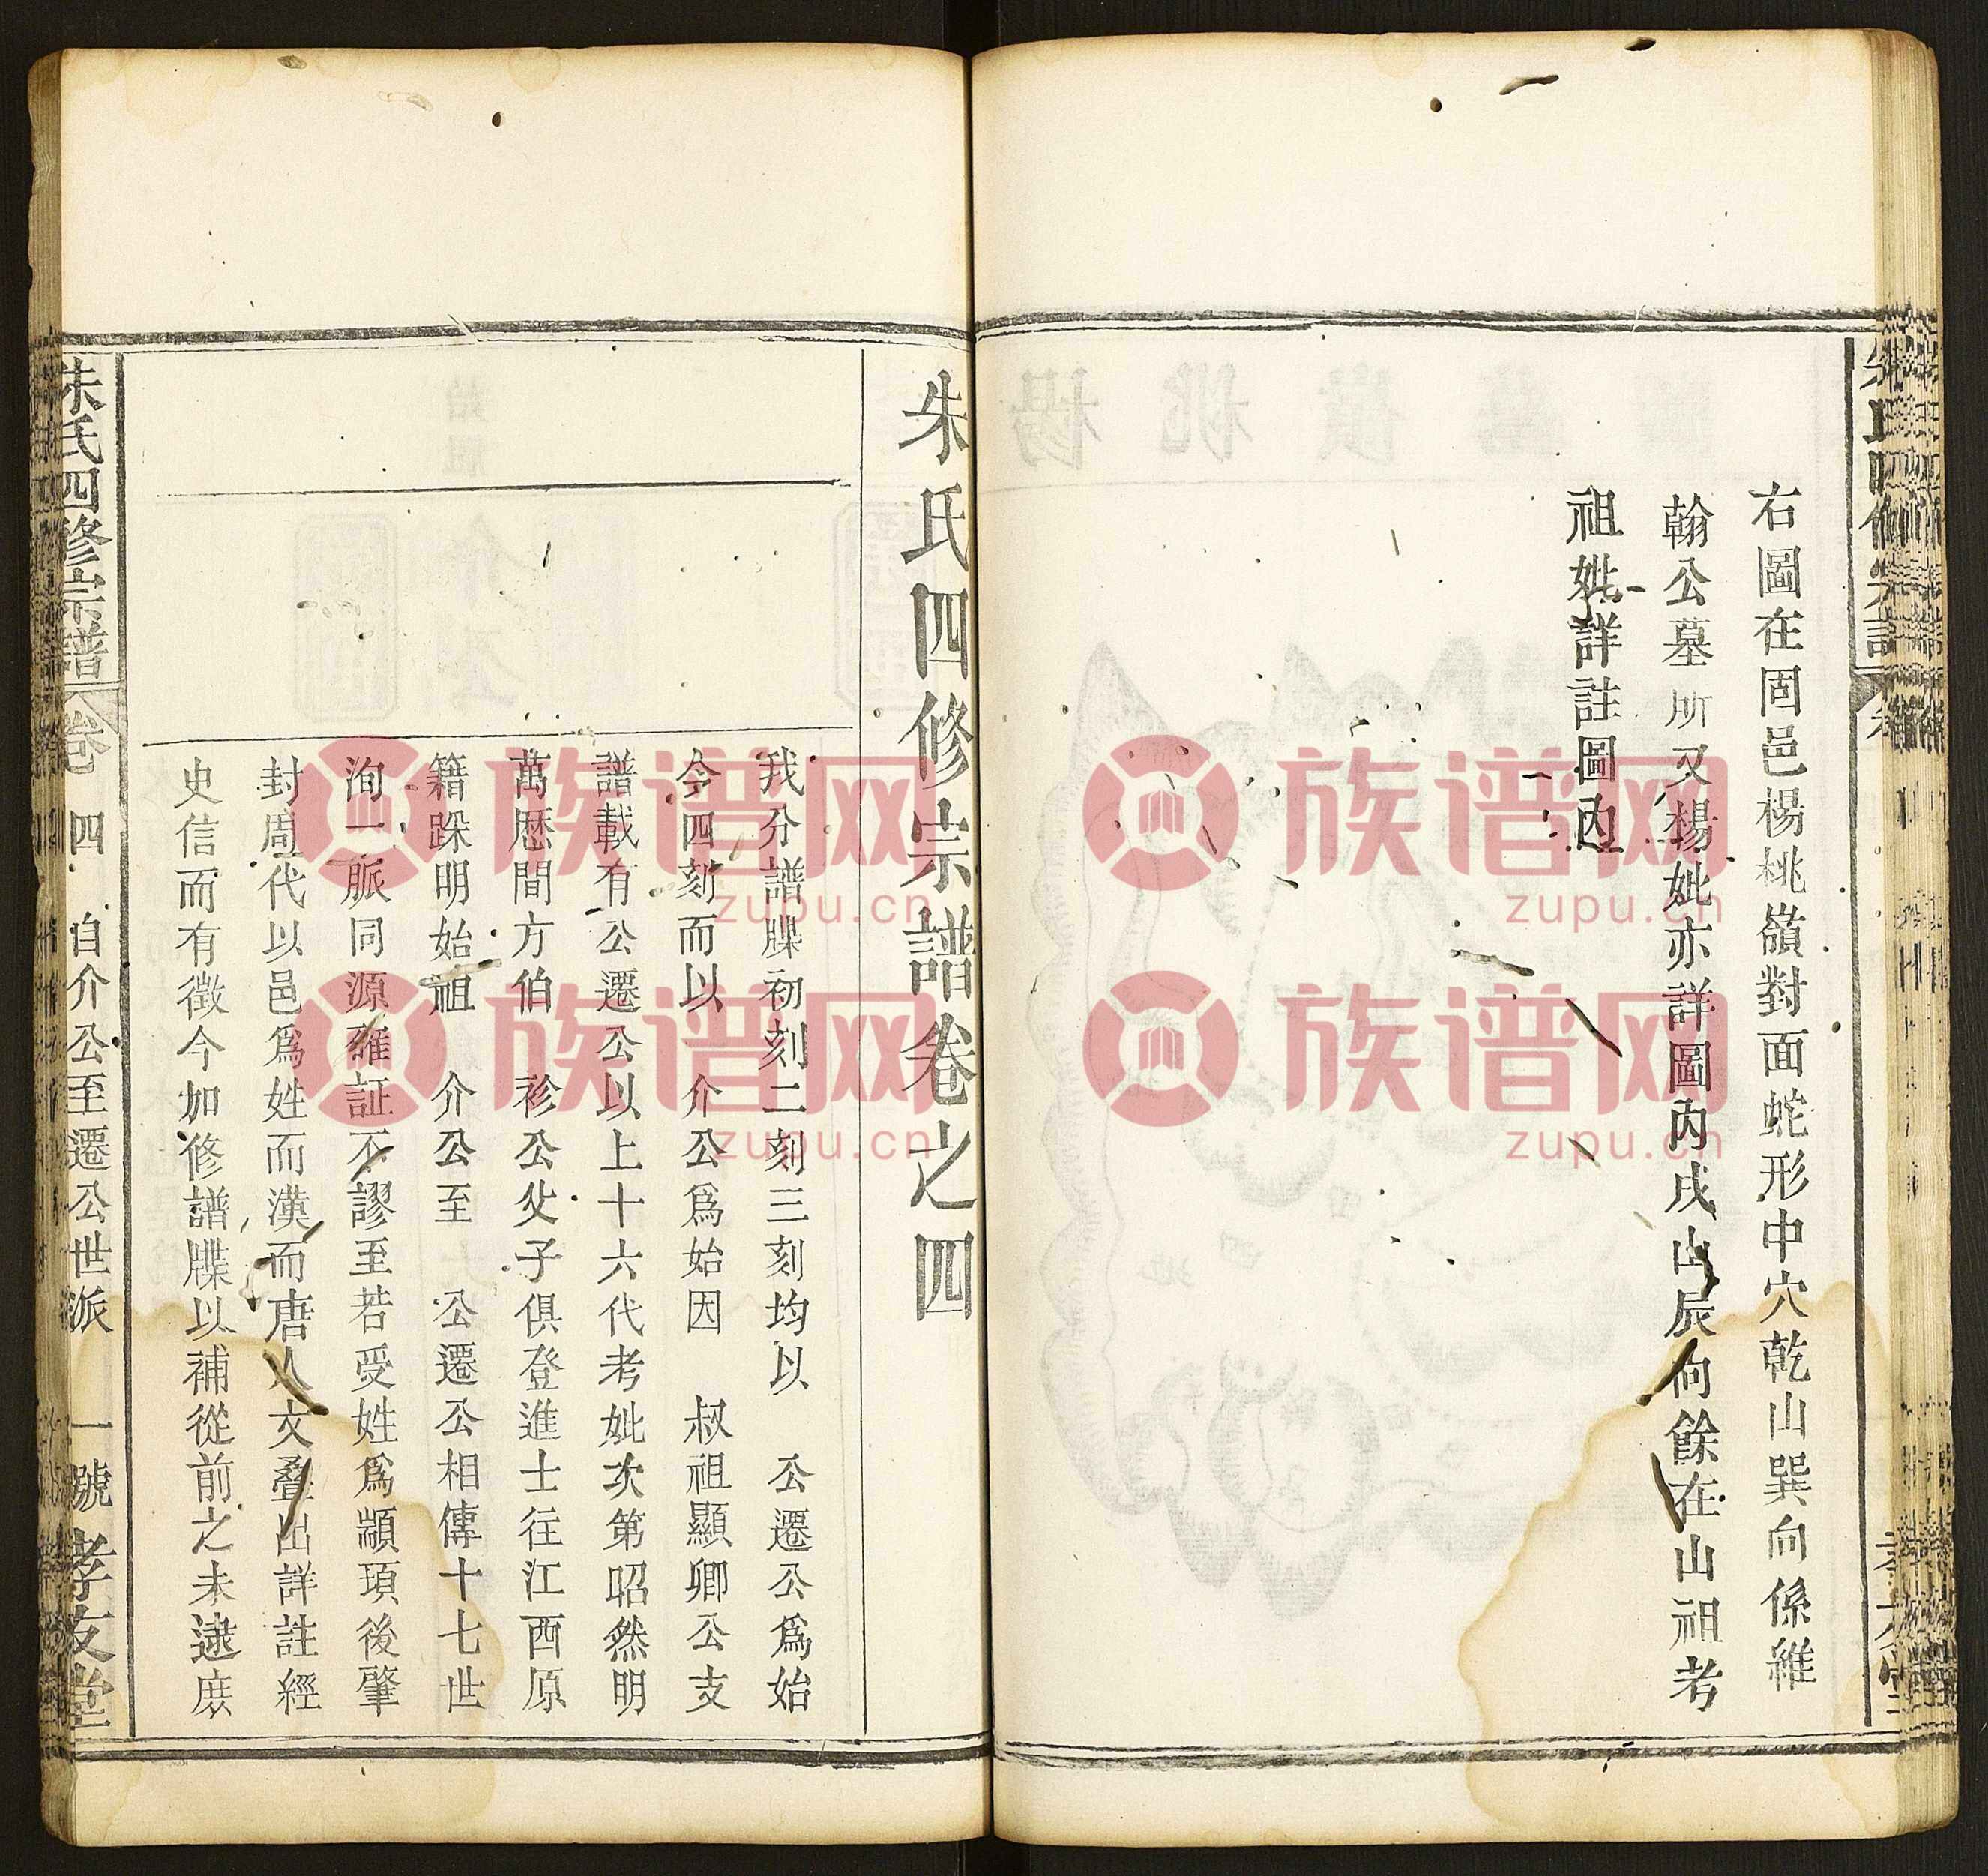 右圖在固邑楊桃嶺對面蛇形中穴乾山巽向係維
翰公墓所又楊妣亦詳圖內戌山辰向餘在山祖考
祖妣詳註圖內
朱氏四修宗譜卷之四
我分譜牒初刻二刻三刻均以 公遷公爲始
今四刻而以 介公爲始因 叔祖顯卿公支
譜載有公遷公以上十六代考妣次第昭然明
萬歷間方伯 衫公父子俱登進士往江西原
籍跺明始祖 介公至 公遷公相傳十七世
洵一脈同源確証不謬至若受姓爲顓頊後肇
封周代以邑爲姓而漢而唐人文叠出詳註經
史信而有徵今加修譜牒以補從前之未逮庶
朱氏四修宗譜 卷 四 自介公至遷公世派 一號 孝友堂
族谱网
zupu.cn
族谱网
zupu.cn
族谱网
zupu.cn
族谱网
zupu.cn